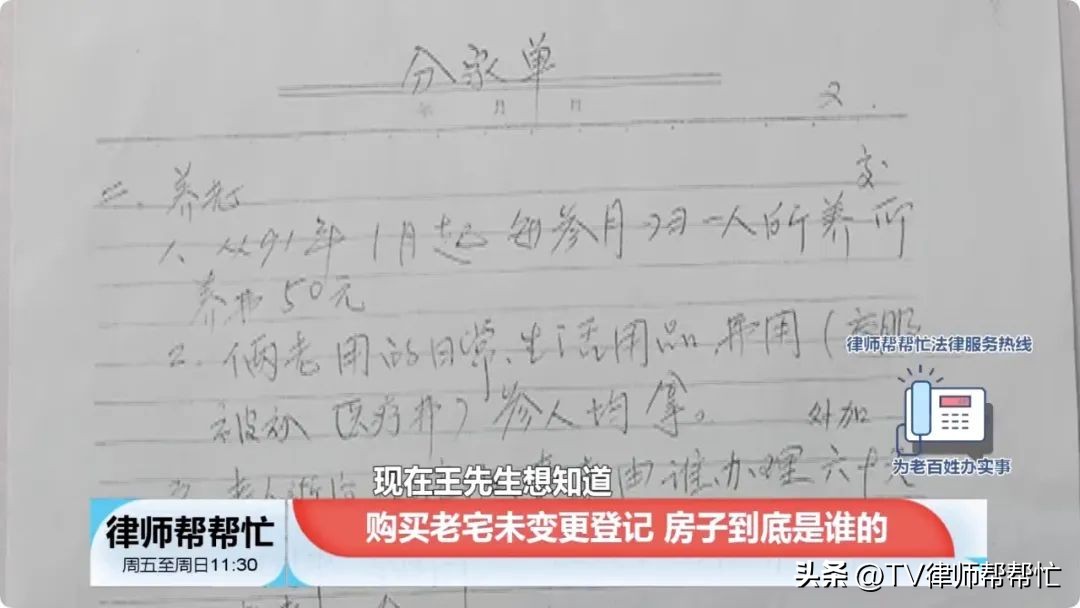 分家单
年 月 日
又.
二、养老
交
1、从91年1月起每叁月归一人所养所
养费50元
2、俩老用的日常、生活用品,费用(衣服
被初 医疗费)叁人均拿。
外加
3、老人 由谁办理六十元
律师帮帮忙法律服务热线
为老百姓办实事
现在王先生想知道
律师帮帮忙
周五至周日11:30
购买老宅未变更登记 房子到底是谁的
头条 @TV律师帮帮忙